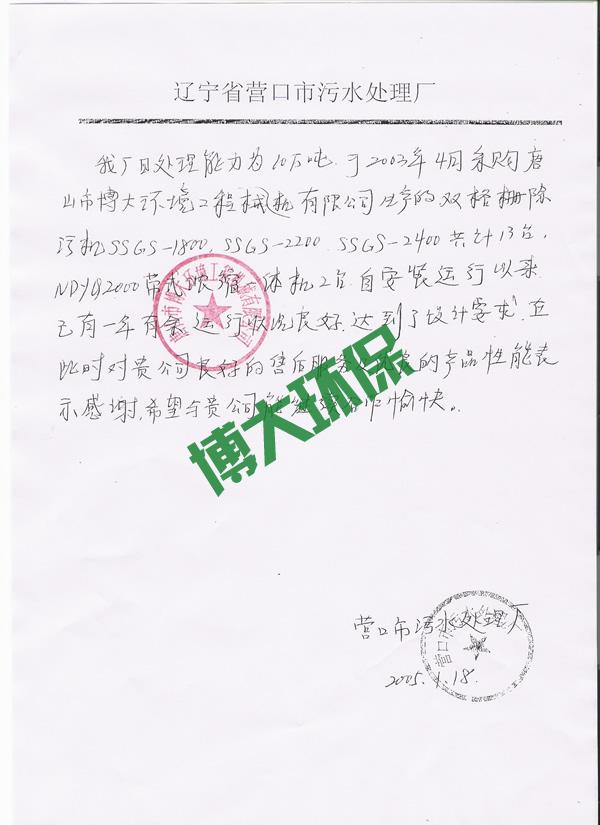 辽宁省营口市污水处理厂
我厂日处理能力为10万吨.于2003年4月采购唐
山市博大环境工程械机有限公司生产的双格栅除
污机SSGS-1800,SSGS-2200.SSGS-2400共计13台,
NDYQ2000带式浓缩一体机2台.自安装运行以来
已有一年有余.运行状况良好.达到了设计要求.在
此时对贵公司良好的售后服务及优良的产品性能表
示感谢.希望与贵公司能继续合作愉快.
博大环保
营口市污水处理厂
2005.1.18.